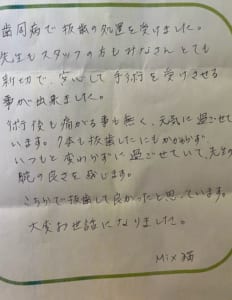 歯周病で抜歯の処置を受けました。
先生もスタッフの方もみなさん とても
親切で、安心して手術を受けさせる
事が出来ました。
術後も痛がる事も無く、元気に過ごせて
います。7本も抜歯したにもかかわらず、
いつもと変わらずに過ごせていて、先生の
腕の良さを感じます。
こちらで抜歯して良かったと思っています。
大変お世話になりました。
Mix猫